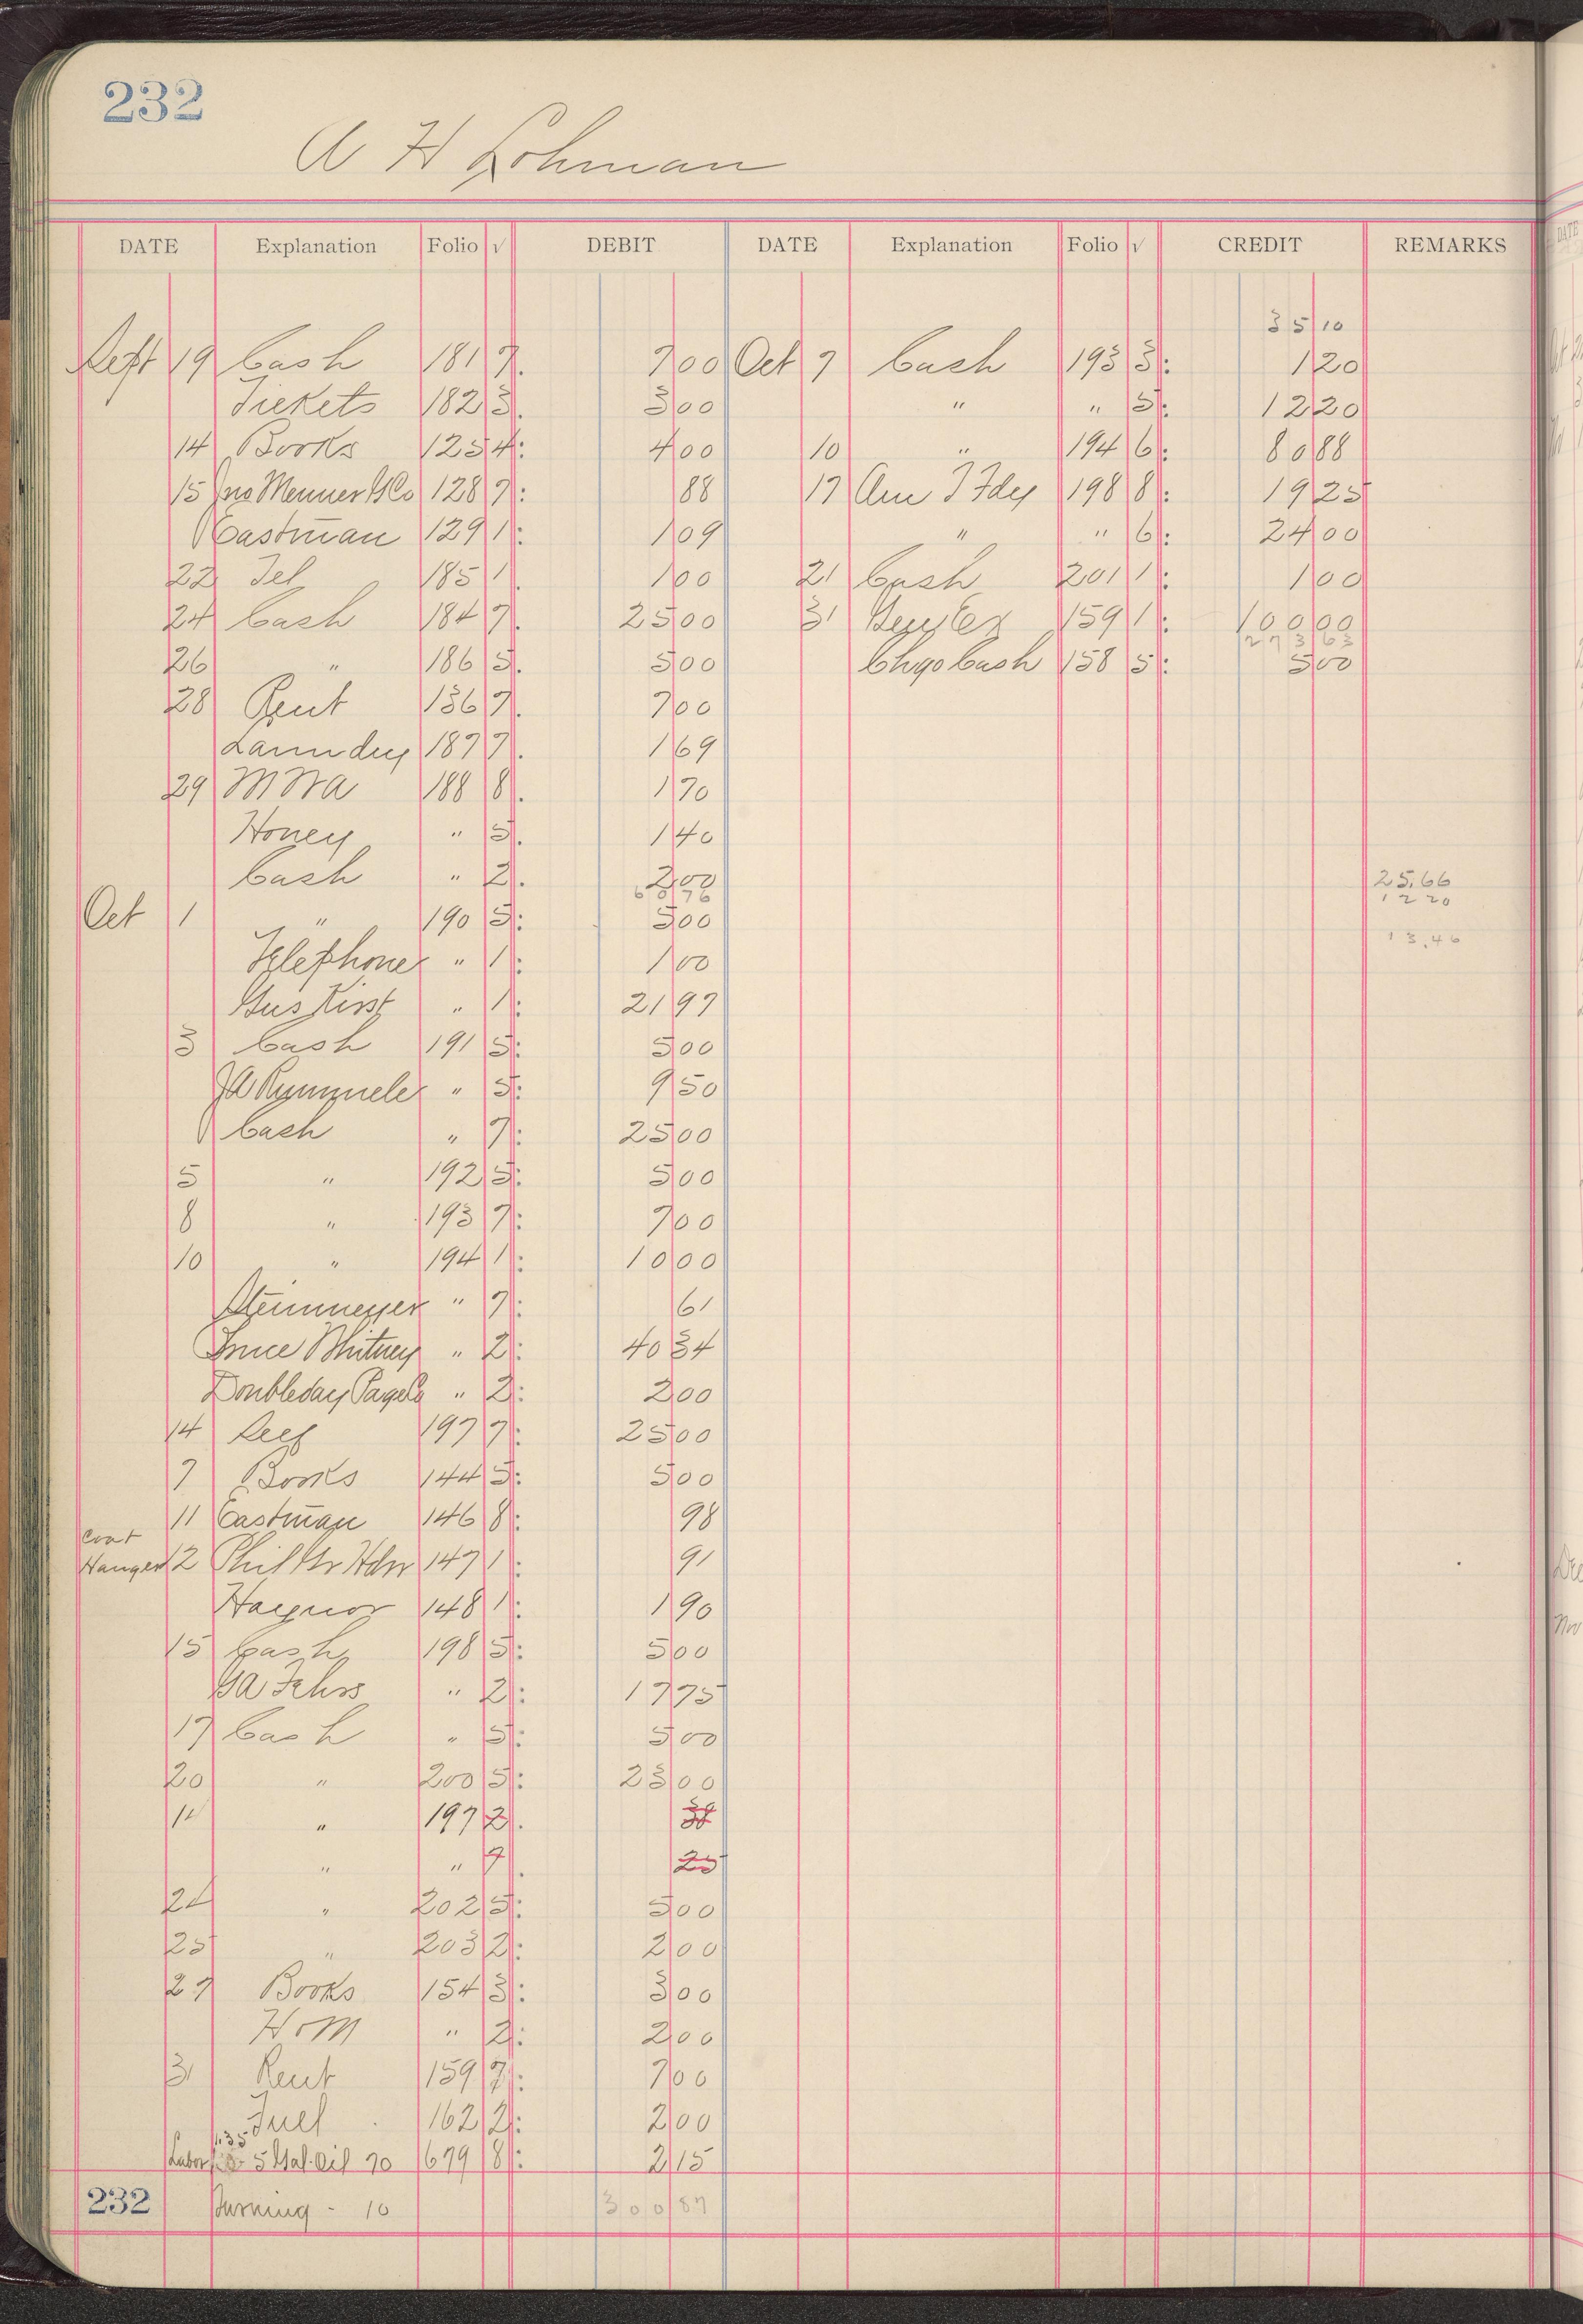 232
A H Lohman
DATE Explanation Folio √ DEBIT DATE Explanation Folio √ CREDIT REMARKS
35 10
Sept 19 Cash 181 7. 7 00 Oct 7 Cash 193 3: 1 20
Tickets 182 3. 3 00 " " 5: 12 20
14 Books 125 4: 4 00 10 " 194 6: 80 88
15 Jno Menner & Co 128 7: 88 17 Am T Fdy 198 8: 19 25
Eastman 129 1: 1 09 " " 6: 24 00
22 Tel 185 1. 1 00 21 Cash 201 1: 1 00
24 Cash 184 7. 25 00 31 159 1: 100 00
273 63
26 " 186 5. 5 00 Chgo Cash 158 5: 5 00
28 Rent 136 7. 7 00
Laundry 187 7. 1 69
29 188 8. 1 70
Honey " 5. 1 40
Cash " 2. 2 00
60 76
25.66
12 20
Oct 1 " 190 5: 5 00
13.46
Telephone " 1: 1 00
Gus Kirst " 1: 21 97
3 Cash 191 5: 5 00
JA Rummele " 5: 9 50
Cash " 7: 25 00
5 " 192 5: 5 00
8 " 193 7: 7 00
10 " 194 1: 10 00
Steinmeyer " 7: 61
Whitney " 2: 40 34
Doubleday Page Co " 2: 2 00
14 197 7: 25 00
7 Books 144 5: 5 00
11 Eastman 146 8: 98
Coat
Hanger 12 Phil Gr Hdw 147 1: 91
Haynor 148 1: 1 90
15 Cash 198 5: 5 00
GA Fehrs " 2: 17 75
17 Cash " 5: 5 00
20 " 200 5: 23 00
14 " 197 2. 38
" " 7. 25
24 " 202 5: 5 00
25 " 203 2: 2 00
27 Books 154 3: 3 00
H & M " 2: 2 00
31 Rent 159 7: 7 00
Fuel 162 2: 2 00
1.35
Labor 5 Gal. Oil 70 679 8: 2 15
232 Turning - 10 300 87